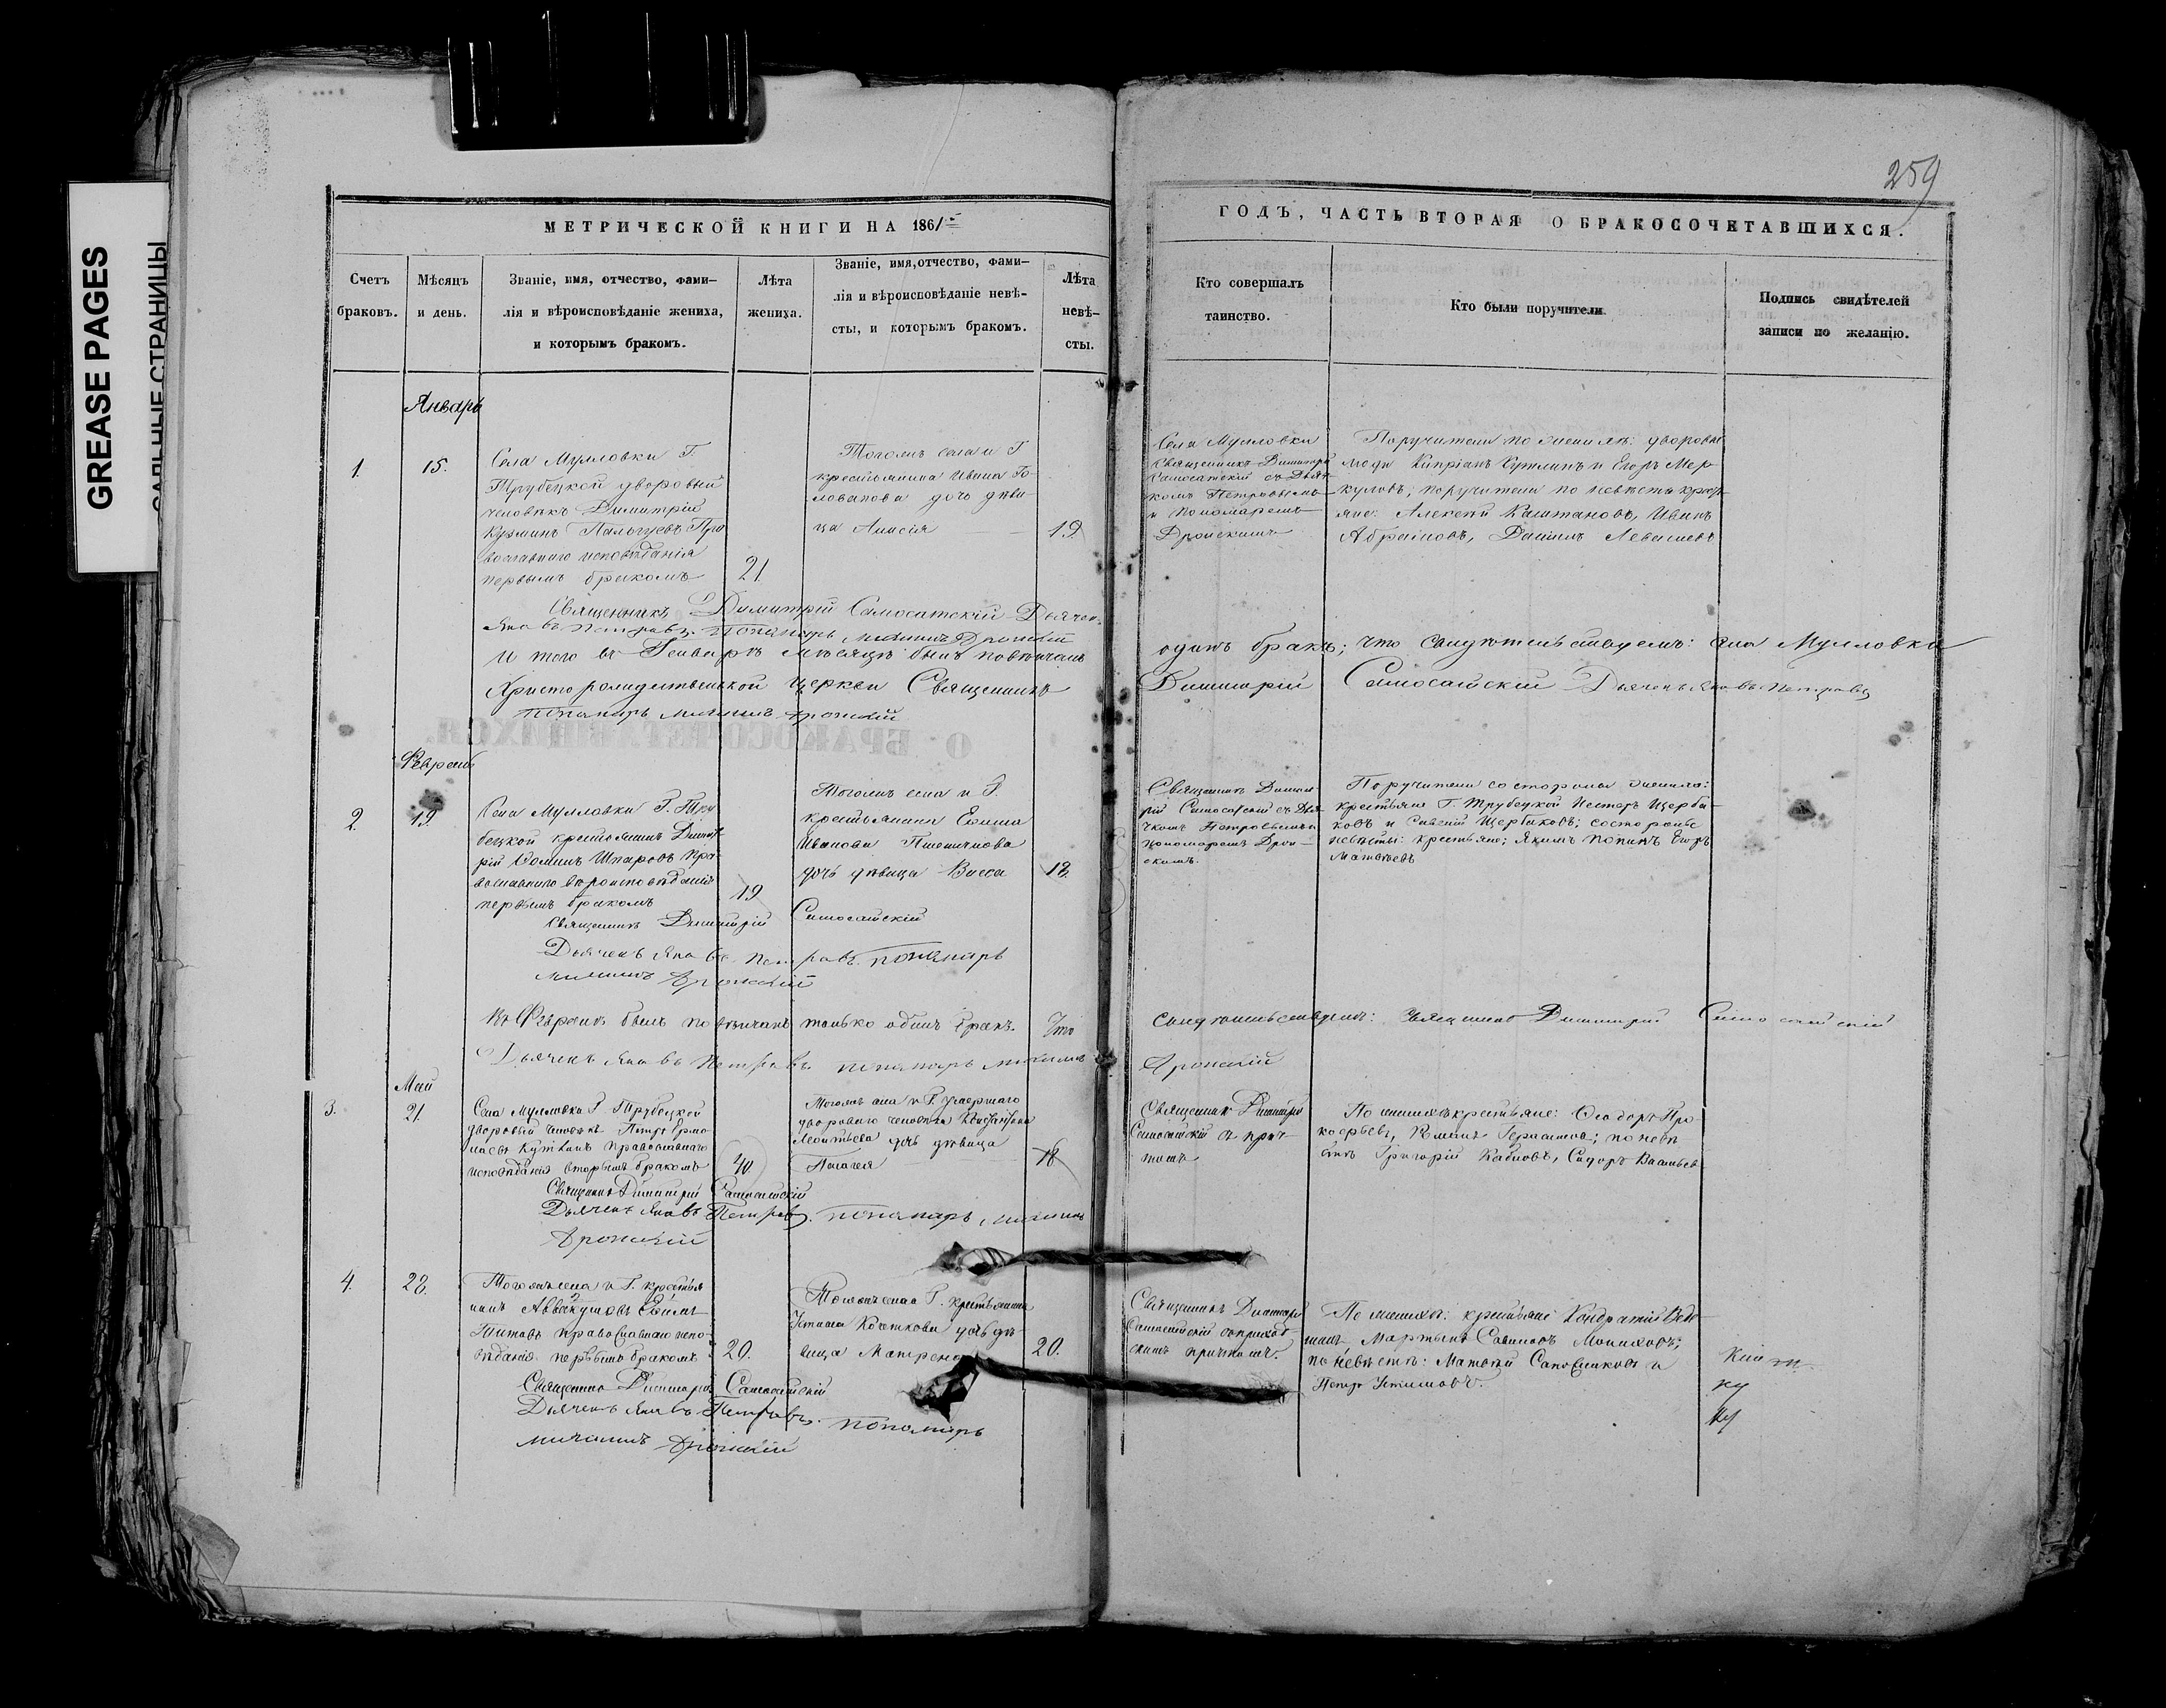 GREASE PAGES
САЛЬНЫЕ СТРАНИЦЫ
259
МЕТРИЧЕСКОЙ КНИГИ НА 1861
Счетъ
браковъ.
Мѣсяцъ
и день.
Званіе, имя, отчество, фами–
лія и вѣроисповѣданіе жениха,
и которымъ бракомъ.
Лѣта
жениха.
Званіе, имя, отчество, фами–
лія и вѣроисповѣданіе невѣ–
сты, и которымъ бракомъ.
Лѣта
невѣ–
сты.
ГОДЪ, ЧАСТЬ ВТОРАЯ О БРАКОСОЧЕТАВШИХСЯ.
Кто совершалъ
таинство.
Кто были поручители
Подпись свидѣтелей
записи по желанію.
Январь
1.
15.
Села Мулловки Г.
Трубецкой дворовый
человѣкъ Димитрій
Кузминъ Пра
вославнаго исповѣданія
первымъ бракомъ
21
Тогожъ села и Г
крестьянина Ивана Го–
лованова дочь дѣви
ца Анисія
19
Села Мулловки
Священникъ Димитрій
Самосатскій съ Дьяч
комъ Петровымъ
и Пономаремъ
Дронскимъ
Поручители по женихѣ: дворовые
люди Кипріанъ Кутлинъ и Егоръ Мер
куловъ; поручители по невѣстѣ крест
яне: Алексѣй Каштановъ, Иванъ
Абрамовъ, Даниилъ Левашевъ
Священникъ Димитрій Самосатскій Дьячек
Яковъ Петровъ. Пономарь Дронскій
И того въ Генварѣ мѣсяцѣ былъ повѣнчанъ
одинъ бракъ; что свидѣтельствуемъ: села Мулловки
Христорождественской церкви Священникъ
Димитрій Самосатскій Дьячекъ Яковъ Петровъ
пономарь Дронскій
Февраль
2.
19.
Села Мулловки Г. Тру
бецкой крестьянинъ Димит
рій Ѳоминъ Шпаровъ пра
вославнаго вѣроисповѣданія
первымъ бракомъ
19
Тогожъ села и Г.
крестьянина
Иванова
дочь дѣвица Васса
18.
Священникъ Димит
рій Самосатскій съ Дья
чкомъ Петровымъ и
пономаремъ Дрон–
скимъ.
Поручители со стороны жениха:
крестьяне Г. Трубецкой Нестеръ Щерба–
ковъ и Савелій Щербаковъ; со стороны
невѣсты: крестьяне; Якимъ Егоръ
Матвѣевъ
Священникъ Димитрій Самосатскій
Дьячекъ Яковъ Петровъ. пономарь
Дронскій
Въ Февралѣ былъ повѣнчанъ только одинъ бракъ. Что
свидѣтельствуемъ: Священникъ Димитрій Самосатскій
Дьячекъ Яковъ Петровъ. пономарь
Дронскій
Май
3.
21.
Села Мулловки Г. Трубецкой
дворовый человѣкъ Петръ Ермо
лаевъ православнаго
исповѣданія вторымъ бракомъ
40
Тогожъ села и Г. умершаго
двороваго человѣка
Леонтьева дочь дѣвица
Пелагея
18
Священникъ Димитрій
Самосатскій съ прич–
томъ
По женихѣ крестьяне: Ѳеодоръ Про
кофьевъ, Герасимов; по невѣ
стѣ Григорій Сидоръ Васильев
Священникъ Димитрій Самосатскій
Дьячекъ Яковъ Петровъ. пономарь
Дронскій
4.
28.
Тогожъ села и Г. крестья
нинъ
Титовъ православнаго испо–
вѣданія первымъ бракомъ
20.
Тогожъ села Г. крестьянина
дочь дѣ–
вица Матрена
20.
Священникъ Димитрій
Самосатскій
причтомъ.
По женихѣ: крестьяне Кондратій
Мартынъ Савиновъ
по невѣстѣ: Матвѣй и
Петръ Устимовъ.
Священникъ Димитрій Самосатскій
Дьячекъ Яковъ Петровъ. пономарь
Дронскій